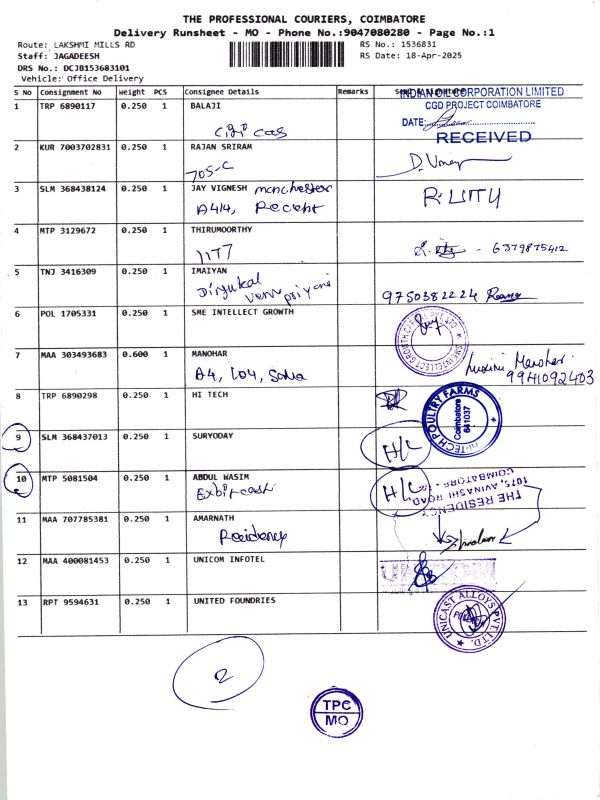 THE PROFESSIONAL COURIERS, COIMBATORE
Delivery Runsheet - MO - Phone No.:9047080280 - Page No.:1
Route: LAKSHMI MILLS RD
RS No.: 1536831
Staff: JAGADEESH
RS Date: 18-Apr-2025
DRS No.: DCJB153683101
Vehicle: Office Delivery
S No Consignment No Weight PCS Consignee Details Remarks
INDIAN OIL CORPORATION LIMITED
CGD PROJECT COIMBATORE
DATE:
RECEIVED
1 TRP 6890117 0.250 1 BALAJI
2 KUR 7003702831 0.250 1 RAJAN SRIRAM
705-C
3 SLM 368438124 0.250 1 JAY VIGNESH manchester
A414,
4 MTP 3129672 0.250 1 THIRUMOORTHY
6379875412
5 TNJ 3416309 0.250 1 IMAIYAN
9750382224
6 POL 1705331 0.250 1 SME INTELLECT GROWTH
SME INTELLECT GROWTH
7 MAA 303493683 0.600 1 MANOHAR
A4, 104,
Manohar
9941092403
8 TRP 6890298 0.250 1 HI TECH
HI-TECH POULTRY FARMS
Coimbatore
641037
9 SLM 368437013 0.250 1 SURYODAY
H/L
10 MTP 5081504 0.250 1 ABDUL WASIM
H/L
THE RESIDENCY
1075, AVINASHI ROAD,
COIMBATORE -
11 MAA 707785381 0.250 1 AMARNATH
Residency
12 MAA 400081453 0.250 1 UNICOM INFOTEL
13 RPT 9594631 0.250 1 UNITED FOUNDRIES
UNICAST ALLOYS PVT. LTD.
2
TPC
MO